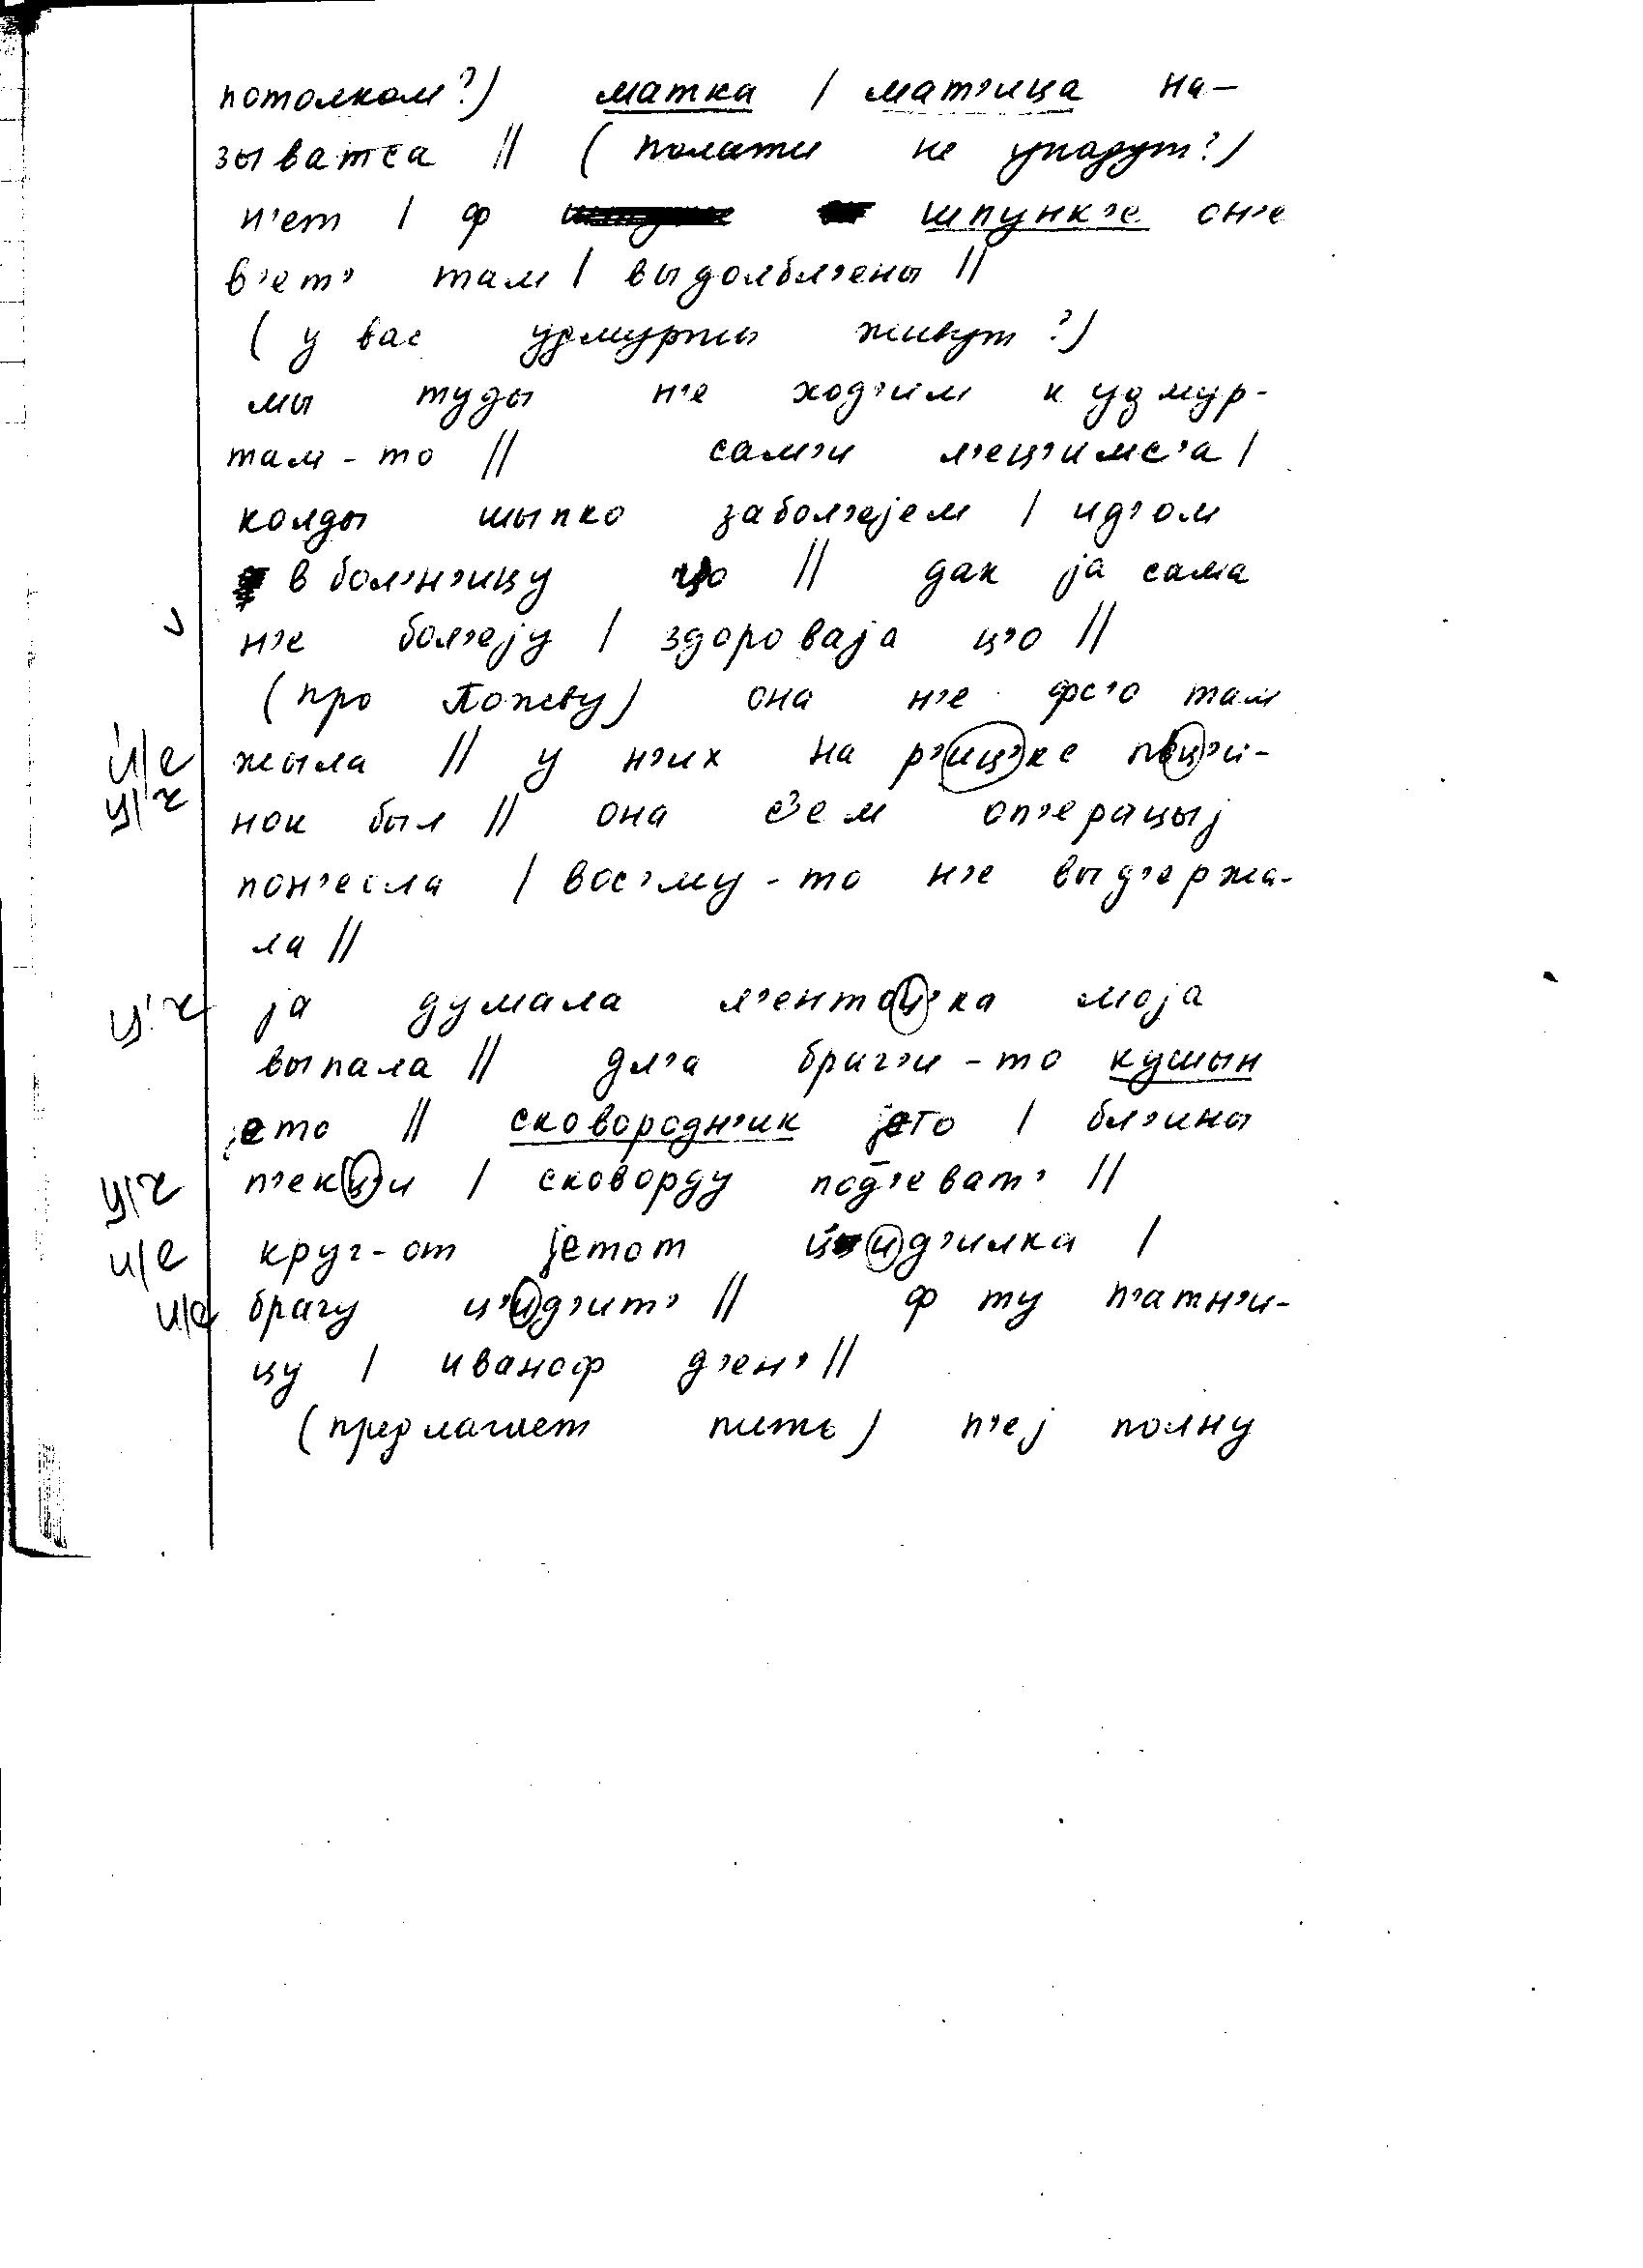 потолком?) матка / мат'ица на-
зыватса // (полати не упадут?)
н'ет / ф шпунк'е он'е
в'ет' там / выдолбл'ены //
(у вас удмурты живут?)
мы туды н'е ход'им к удмур-
там-то // сам'и л'ец'имс'а /
колды шыпко забол'ејем / ид'ом
в бол'н'ицу цо // дак ја сама
н'е бол'еју / здороваја ц'о //
(про Пожву) она н'е фс'о там
и/е жыла // у н'их на р'иц'ке поц'и-
ц'/ч нок был // она с'ем оп'ерацыј
пон'есла / вос'му-то н'е выд'ержа-
ла //
ц'/ч ја думала л'ентоц'ка моја
выпала // дл'а браг'и-то кушын
јето // сковородн'ик јето / бл'ины
ц'/ч п'екц'и / сковорду под'еват' //
и/е круг-от јетот ц'ид'илка /
и/е брагу ц'ид'ит' // ф ту п'атн'и-
цу / иваноф д'ен' //
(предлагает пить) п'еј полну